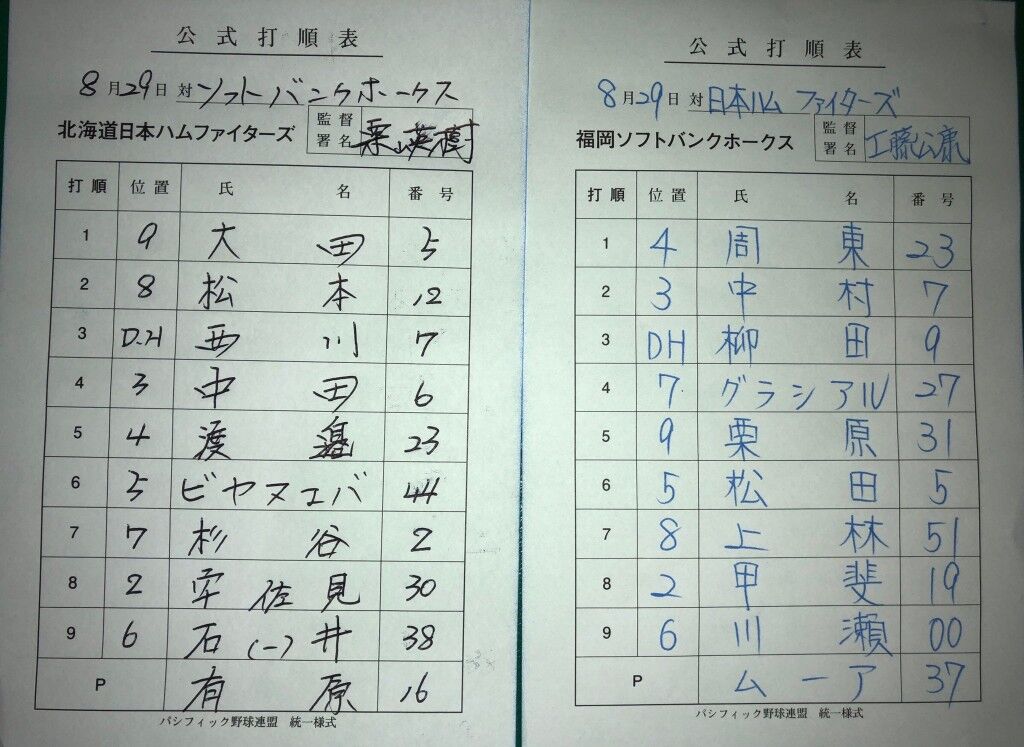 公式打順表
8月29日 対 ソフトバンクホークス
北海道日本ハムファイターズ 監督署名 栗山英樹
打順 位置 氏名 番号
1 9 大田 5
2 8 松本 12
3 D.H 西川 7
4 3 中田 6
5 4 渡邉 23
6 5 ビヤヌエバ 44
7 7 杉谷 2
8 2 宇佐見 30
9 6 石(一)井 38
P 有原 16
パシフィック野球連盟 統一様式
公式打順表
8月29日 対 日本ハム ファイターズ
福岡ソフトバンクホークス 監督署名 工藤公康
打順 位置 氏名 番号
1 4 周東 23
2 3 中村 7
3 DH 柳田 9
4 7 グラシアル 27
5 9 栗原 31
6 5 松田 5
7 8 上林 51
8 2 甲斐 19
9 6 川瀬 00
P ムーア 37
パシフィック野球連盟 統一様式